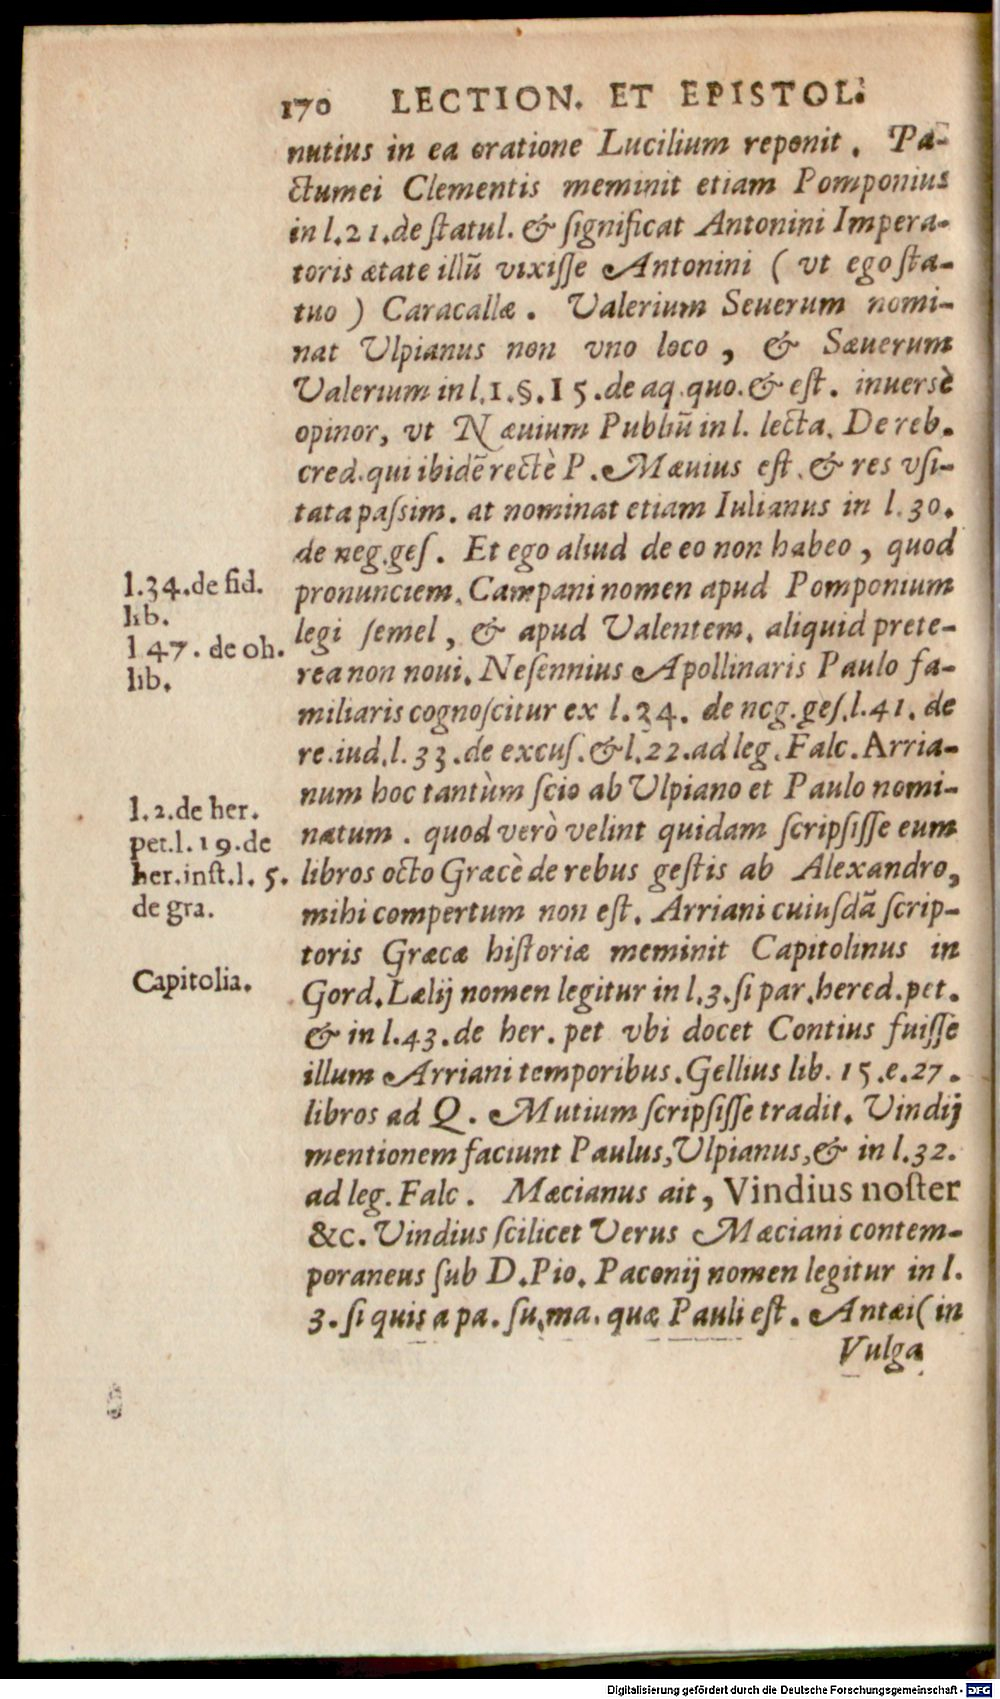 170 LECTION. ET EPISTOL.
nutius in ea oratione Lucilium reponit. Pa-
ctumei Clementis meminit etiam Pomponius
in l.21.de ſtatul. & ſignificat Antonini Impera-
toris ætate illū vixiſſe Antonini ( vt ego ſta-
tuo ) Caracallæ. Valerium Seuerum nomi-
nat Vlpianus non vno loco, & Sæuerum
Valerium in l.1.§.15.de aq.quo.& eſt. inuersè
opinor, vt Næuium Publiū in l. lecta. De reb.
cred.qui ibidē rectè P. Mæuius eſt.& res vſi-
tata paſsim. at nominat etiam Iulianus in l.30.
de neg.geſ. Et ego aliud de eo non habeo, quod
pronunciem. Campani nomen apud Pomponium
legi ſemel, & apud Valentem. aliquid prete-
rea non noui. Neſennius Apollinaris Paulo fa-
miliaris cognoſcitur ex l.34. de neg.geſ.l.41. de
re.iud.l.33.de excuſ.&l.22.ad leg.Falc.Arria-
num hoc tantùm ſcio ab Vlpiano et Paulo nomi-
natum. quod verò velint quidam ſcripſiſſe eum
libros octo Græcè de rebus geſtis ab Alexandro,
mihi compertum non eſt. Arriani cuiuſdā ſcrip-
toris Græcæ hiſtoriæ meminit Capitolinus in
Gord.Lælij nomen legitur in l.3.ſi par.hered.pet.
& in l.43.de her.pet vbi docet Contius fuiſſe
illum Arriani temporibus.Gellius lib. 15.e.27.
libros ad Q. Mutium ſcripſiſſe tradit. Vindij
mentionem faciunt Paulus,Vlpianus,& in l.32.
ad leg.Falc. Mæcianus ait, Vindius noſter
&c. Vindius ſcilicet Verus Mæciani contem-
poraneus ſub D.Pio. Paconij nomen legitur in l.
3.ſi quis a pa.ſu.ma.quæ Pauli eſt. Antæi( in
Vulga
l.34.de fid.
lib.
l 47. de oh.
lib.
l.2.de her.
pet.l.19.de
her.inſt.l. 5.
de gra.
Capitolia.
Digitalisierung gefördert durch die Deutsche Forschungsgemeinschaft - DFG